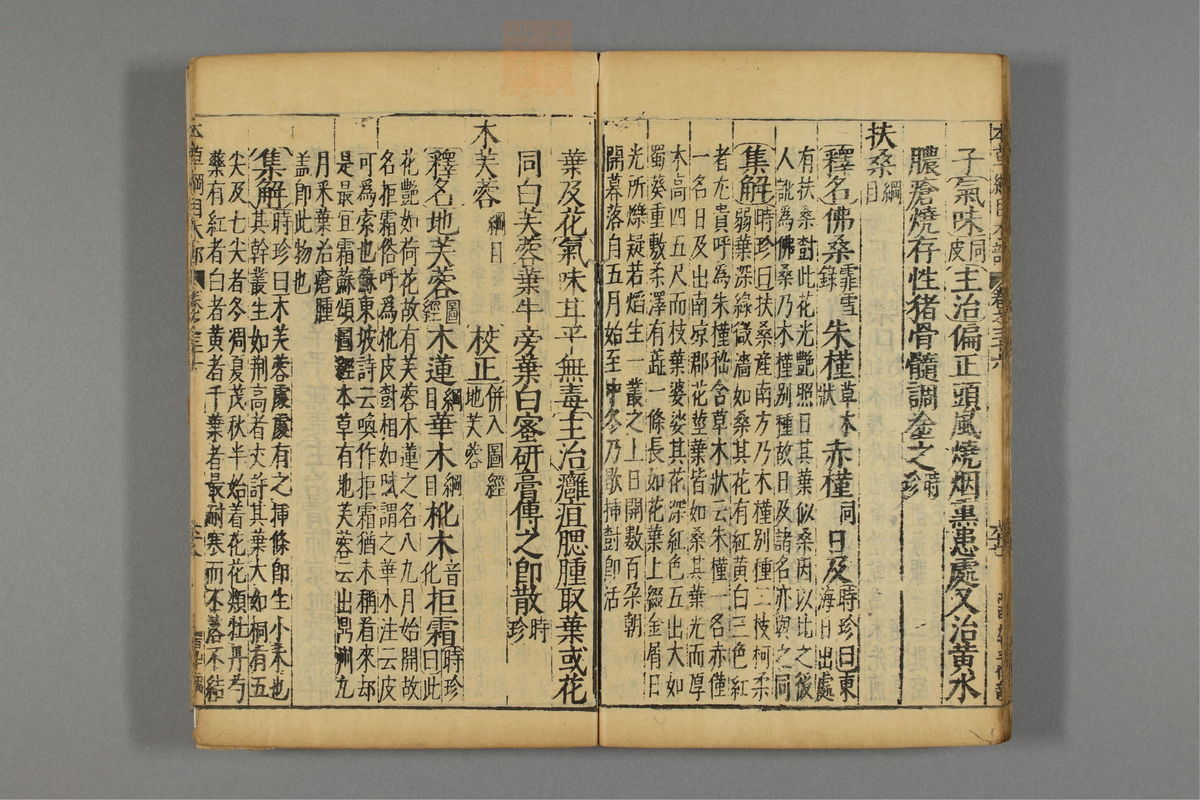 子氣味同皮主治偏正頭風燒烟熏患處又治黄水
膿瘡燒存性猪骨髓調塗之時珍
扶桑綱目
釋名佛桑霏雪錄朱槿草木狀赤槿同日及時珍曰東海日出處
有扶桑樹此花光艷照日其葉似桑因以比之後
人訛爲佛桑乃木槿别種故日及諸名亦與之同
集解時珍曰扶桑産南方乃木槿别種二枝柯柔
弱葉深綠微澀如桑其花有紅黄白三色紅
者尤貴呼爲朱槿嵇含草木狀云朱槿一名赤槿
一名日及出南凉郡花莖葉皆如桑其葉光而厚
木高四五尺而枝葉婆娑其花深紅色五出大如
蜀葵重敷柔澤有蕋一條長如花葉上綴金屑日
光所爍疑若焰生一叢之上日開數百朶朝
開暮落自五月始至中冬乃歇揷樹即活
葉及花氣味甘平無毒主治癰疽腮腫取葉或花
同白芙蓉葉牛旁葉白蜜研膏傅之即散時珍
木芙蓉綱目校正併入圖經地芙蓉
釋名地芙蓉圖經木蓮綱目華木綱目杹木音化拒霜時珍曰此
花艷如荷花故有芙蓉木蓮之名八九月始開故
名拒霜俗呼爲杹皮樹相如賦謂之華木注云皮
可爲索也蘇東坡詩云喚作拒霜猶未稱看來却
是最宜霜蘇頌圖經本草有地芙蓉云出鼎州九
月采葉治瘡腫
盖即此物也
集解時珍曰木芙蓉處處有之揷條即生小木也
其幹叢生如荆高者丈許其葉大如桐有五
尖及七尖者冬凋夏茂秋半始着花花類牡丹芍
藥有紅者白者黄者千葉者最耐寒而不落不結
本草綱目木部